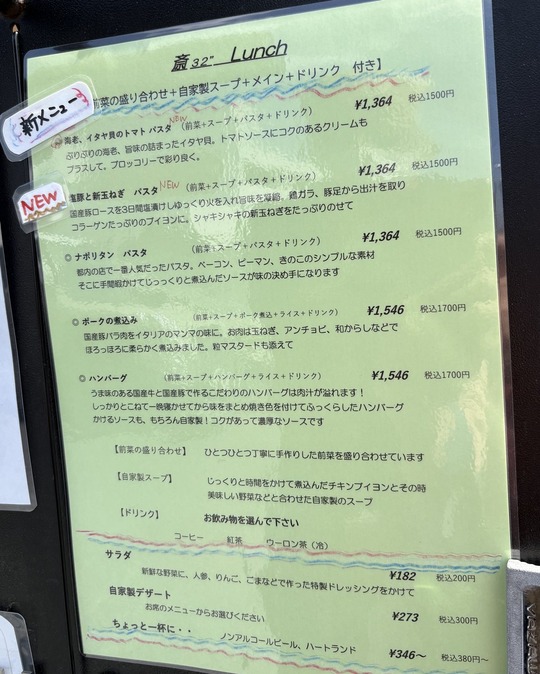 斎32" Lunch
前菜の盛り合わせ+自家製スープ+メイン+ドリンク 付き】
新メニュー
海老、イタヤ貝のトマト パスタ New (前菜+スープ+パスタ+ドリンク) ¥1,364 税込1500円
ぷりぷりの海老、旨味の詰まったイタヤ貝。トマトソースにコクのあるクリームも
プラスして。ブロッコリーで彩り良く。
NEW
塩豚と新玉ねぎ パスタ NEW (前菜+スープ+パスタ+ドリンク) ¥1,364 税込1500円
国産豚ロースを3日間塩漬けしゆっくり火を入れ旨味を凝縮。鶏ガラ、豚足から出汁を取り
コラーゲンたっぷりのブイヨンに。シャキシャキの新玉ねぎをたっぷりのせて
◎ ナポリタン パスタ (前菜+スープ+パスタ+ドリンク) ¥1,364 税込1500円
都内の店で一番人気だったパスタ。ベーコン、ピーマン、きのこのシンプルな素材
そこに手間暇かけてじっっくりと煮込んだソースが味の決め手になります
◎ ポークの煮込み (前菜+スープ+ポーク煮込+ライス+ドリンク) ¥1,546 税込1700円
国産豚バラ肉をイタリアのマンマの味に。お肉は玉ねぎ、アンチョビ、和からしなどで
ほろっほろに柔らかく煮込みました。粒マスタードも添えて
◎ ハンバーグ (前菜+スープ+ハンバーグ+ライス+ドリンク) ¥1,546 税込1700円
うま味のある国産牛と国産豚で作るこだわりのハンバーグは肉汁が溢れます！
しっかりとこねて一晩寝かせてから味をまとめ焼き色を付けてふっくらしたハンバーグ
かけるソースも、もちろん自家製！コクがあって濃厚なソースです
【前菜の盛り合わせ】 ひとつひとつ丁寧に手作りした前菜を盛り合わせています
【自家製スープ】 じっくりと時間をかけて煮込んだチキンブイヨンとその時
美味しい野菜などと合わせた自家製のスープ
【ドリンク】 お飲み物を選んで下さい
コーヒー 紅茶 ウーロン茶（冷）
サラダ
新鮮な野菜に、人参、りんご、ごまなどで作った特製ドレッシングをかけて ¥182 税込200円
自家製デザート
お席のメニューからお選びください ¥273 税込300円
ちょっと一杯に・・ ノンアルコールビール、ハートランド ¥346～ 税込380円～